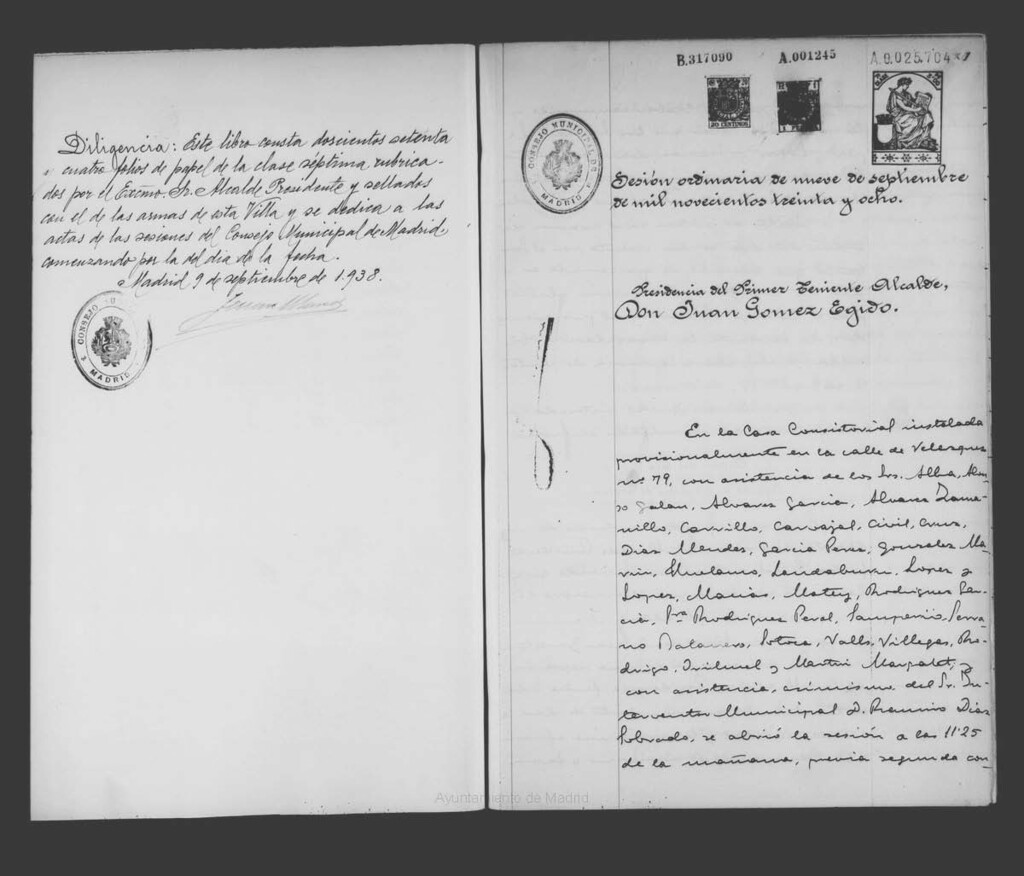 Diligencia: Este libro consta doscientos setenta
y cuatro folios de papel de la clase séptima, rubrica-
dos por el Excmo. Sr. Alcalde Presidente y sellados
con el de las armas de esta Villa y se dedica a las
actas de las sesiones del Consejo Municipal de Madrid,
comenzando por la del dia de la fecha.
Madrid 9 de septiembre de 1.938.
CONSEJO
MADRID
B.317090
A.001245
CONSEJO MUNICIPAL DE
MADRID
Sesión ordinaria de nueve de septiembre
de mil novecientos treinta y ocho.
Presidencia del Primer Teniente Alcalde,
Don Juan Gomez Egido.
En la Casa Consistorial instalada
provisionalmente en la calle de Velazquez
nº 79, con asistencia de los Srs. Alba, Alon-
so Galan, Alvarez Garcia, Alvarez
Carrillo, Carvajal, Civil, Cruz,
Diaz Mendez, Garcia Perez, Gonzalez Ma-
rin, Landaburu, Lopez y
Lopez, Macias, Rodriguez Gar-
cia, Sra Rodriguez Peral, Samperio, Serra-
no Batanero, Valls, Villegas, Ro-
drigo, y Martin y
con asistencia, asimismo, del Sr. In-
terventor Municipal D. Ramiro Diaz
Sobrado, se abrió la sesión a las 11'25
de la mañana, previa segunda con-
Ayuntamiento de Madrid